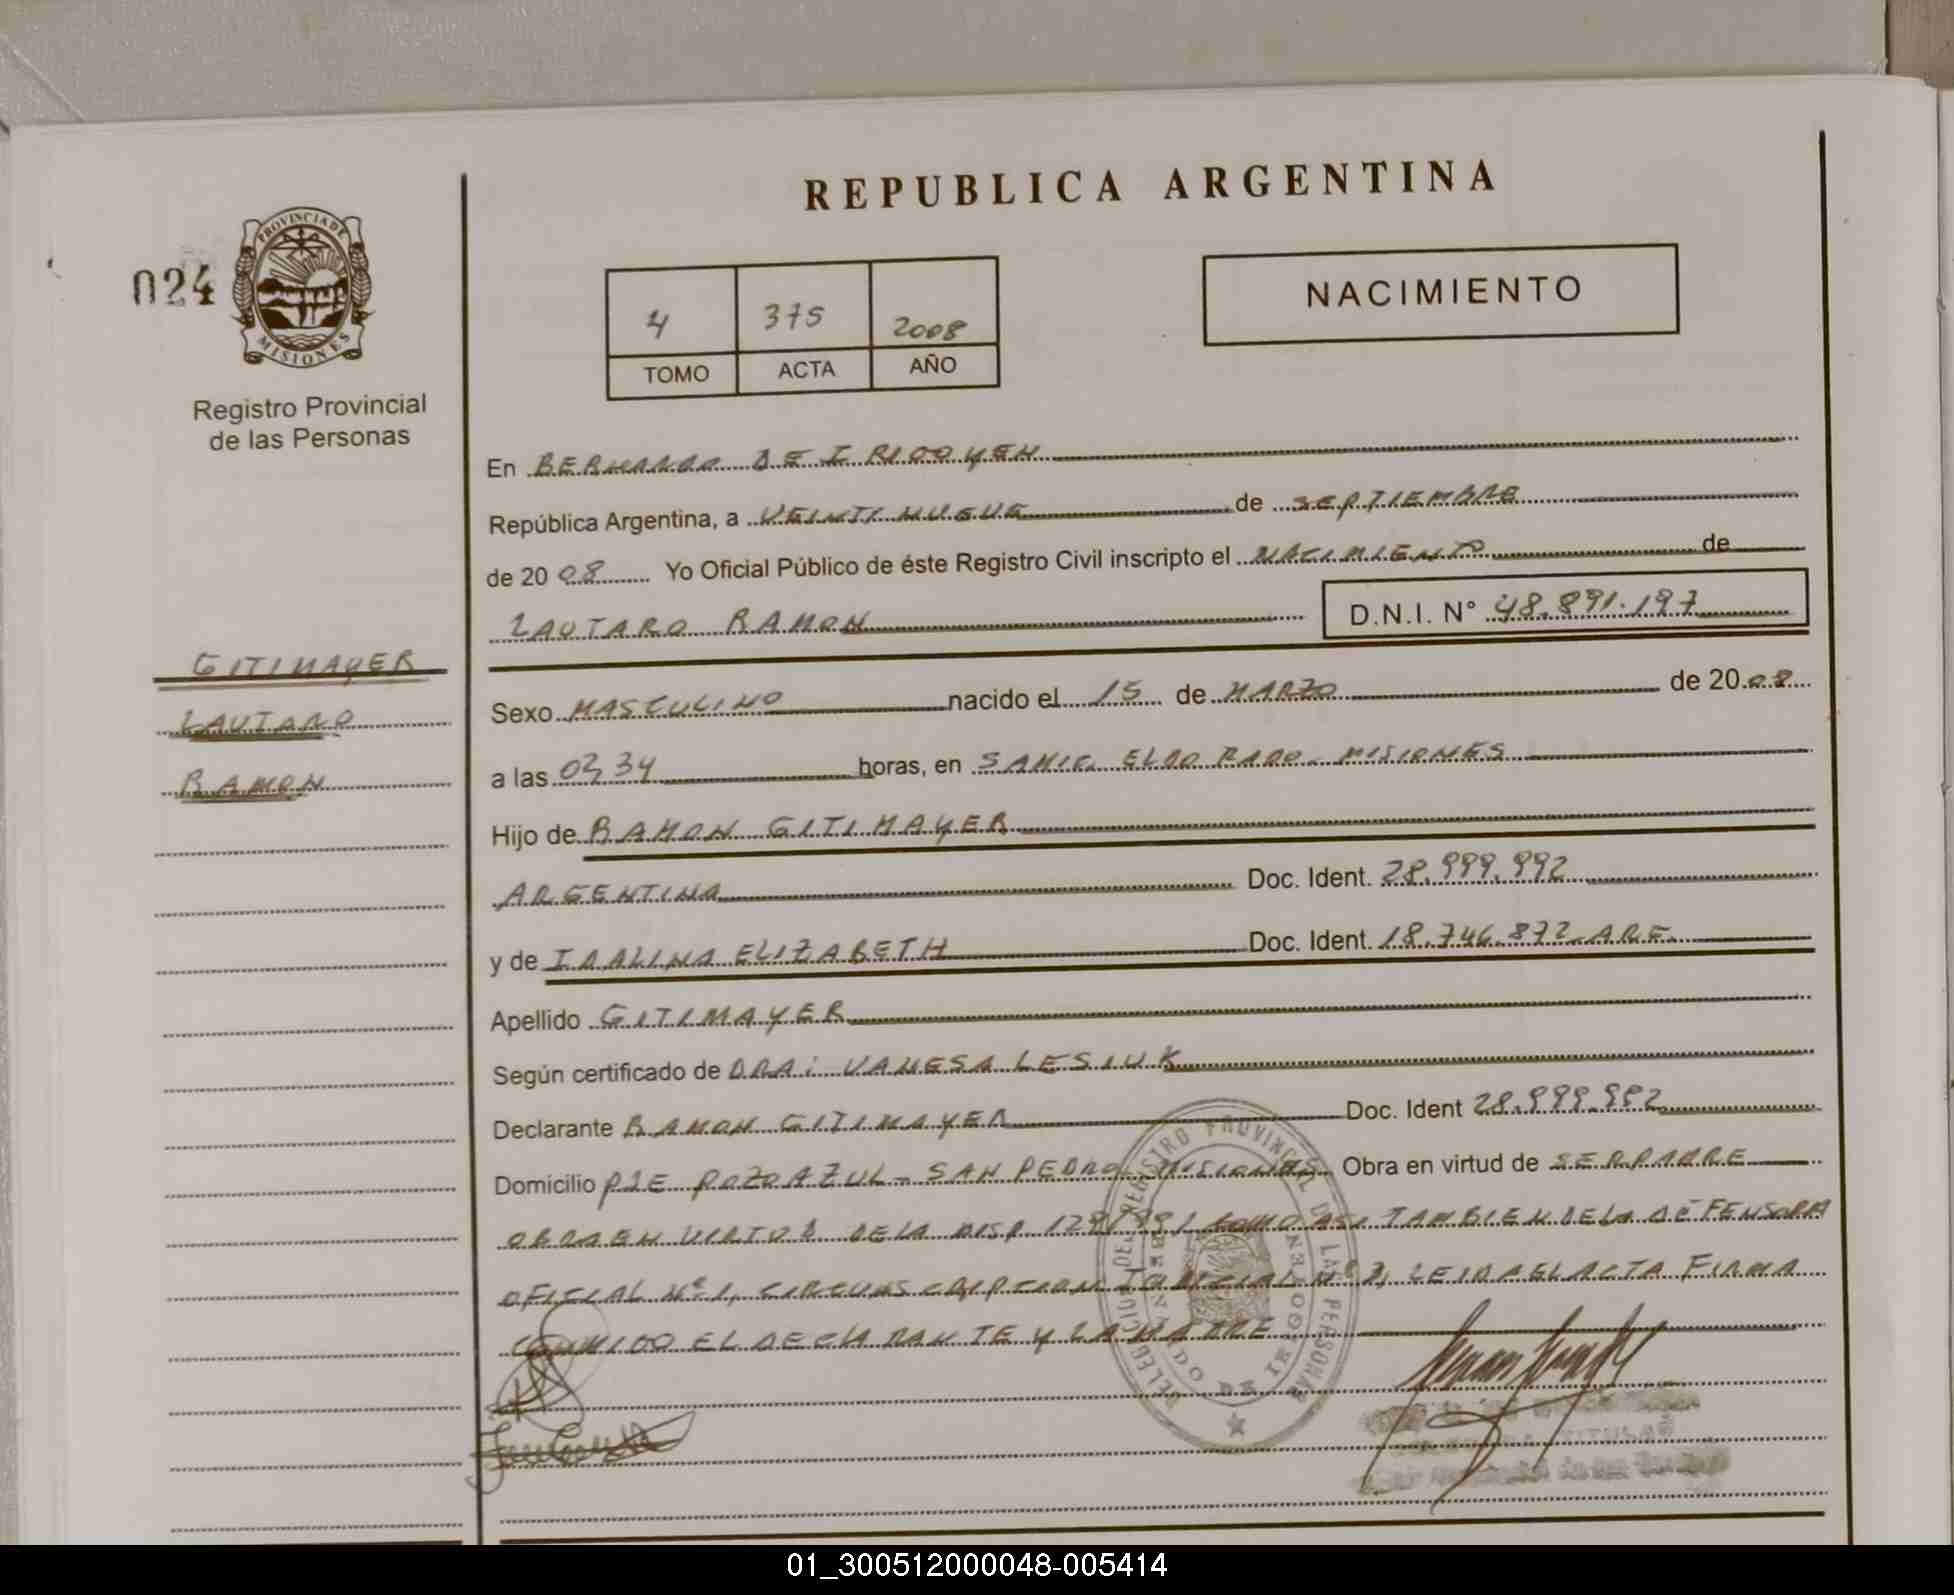 REPUBLICA ARGENTINA
024
PROVINCIA DE
MISIONES
Registro Provincial
de las Personas
4 375 2008
TOMO ACTA AÑO
NACIMIENTO
En BERNARDO DE IRIGOYEN
República Argentina, a VEINTINUEVE de SEPTIEMBRE
de 20 08 Yo Oficial Público de éste Registro Civil inscripto el NACIMIENTO de
LAUTARO RAMON D.N.I. N° 48.891.197
GITIMAYER
LAUTARO
RAMON
Sexo MASCULINO nacido el 15 de MARZO de 20 08
a las 02,34 horas, en SAMIC. ELDORADO. MISIONES
Hijo de RAMON GITIMAYER
ARGENTINA Doc. Ident. 28.999.992
y de IDALINA ELIZABETH Doc. Ident. 18.746.872 ARG.
Apellido GITIMAYER
Según certificado de DRA: VANESA LESIUK
Declarante RAMON GITIMAYER Doc. Ident 28.999.992
Domicilio PJE POZO AZUL - SAN PEDRO MISIONES Obra en virtud de SER PADRE
OBRA EN VIRTUD DE LA DISP. COMO ASI TAMBIEN DE LA DEFENSORA
OFICIAL Nº 1, CIRCUNSCRIPCION JUDICIAL Nº 3, LEIDA EL ACTA FIRMA
CONMIGO EL DECLARANTE Y LA MADRE
DELEGACION DEL REGISTRO PROVINCIAL DE LAS PERSONAS
BERNARDO DE IRIGOYEN
01_300512000048-005414